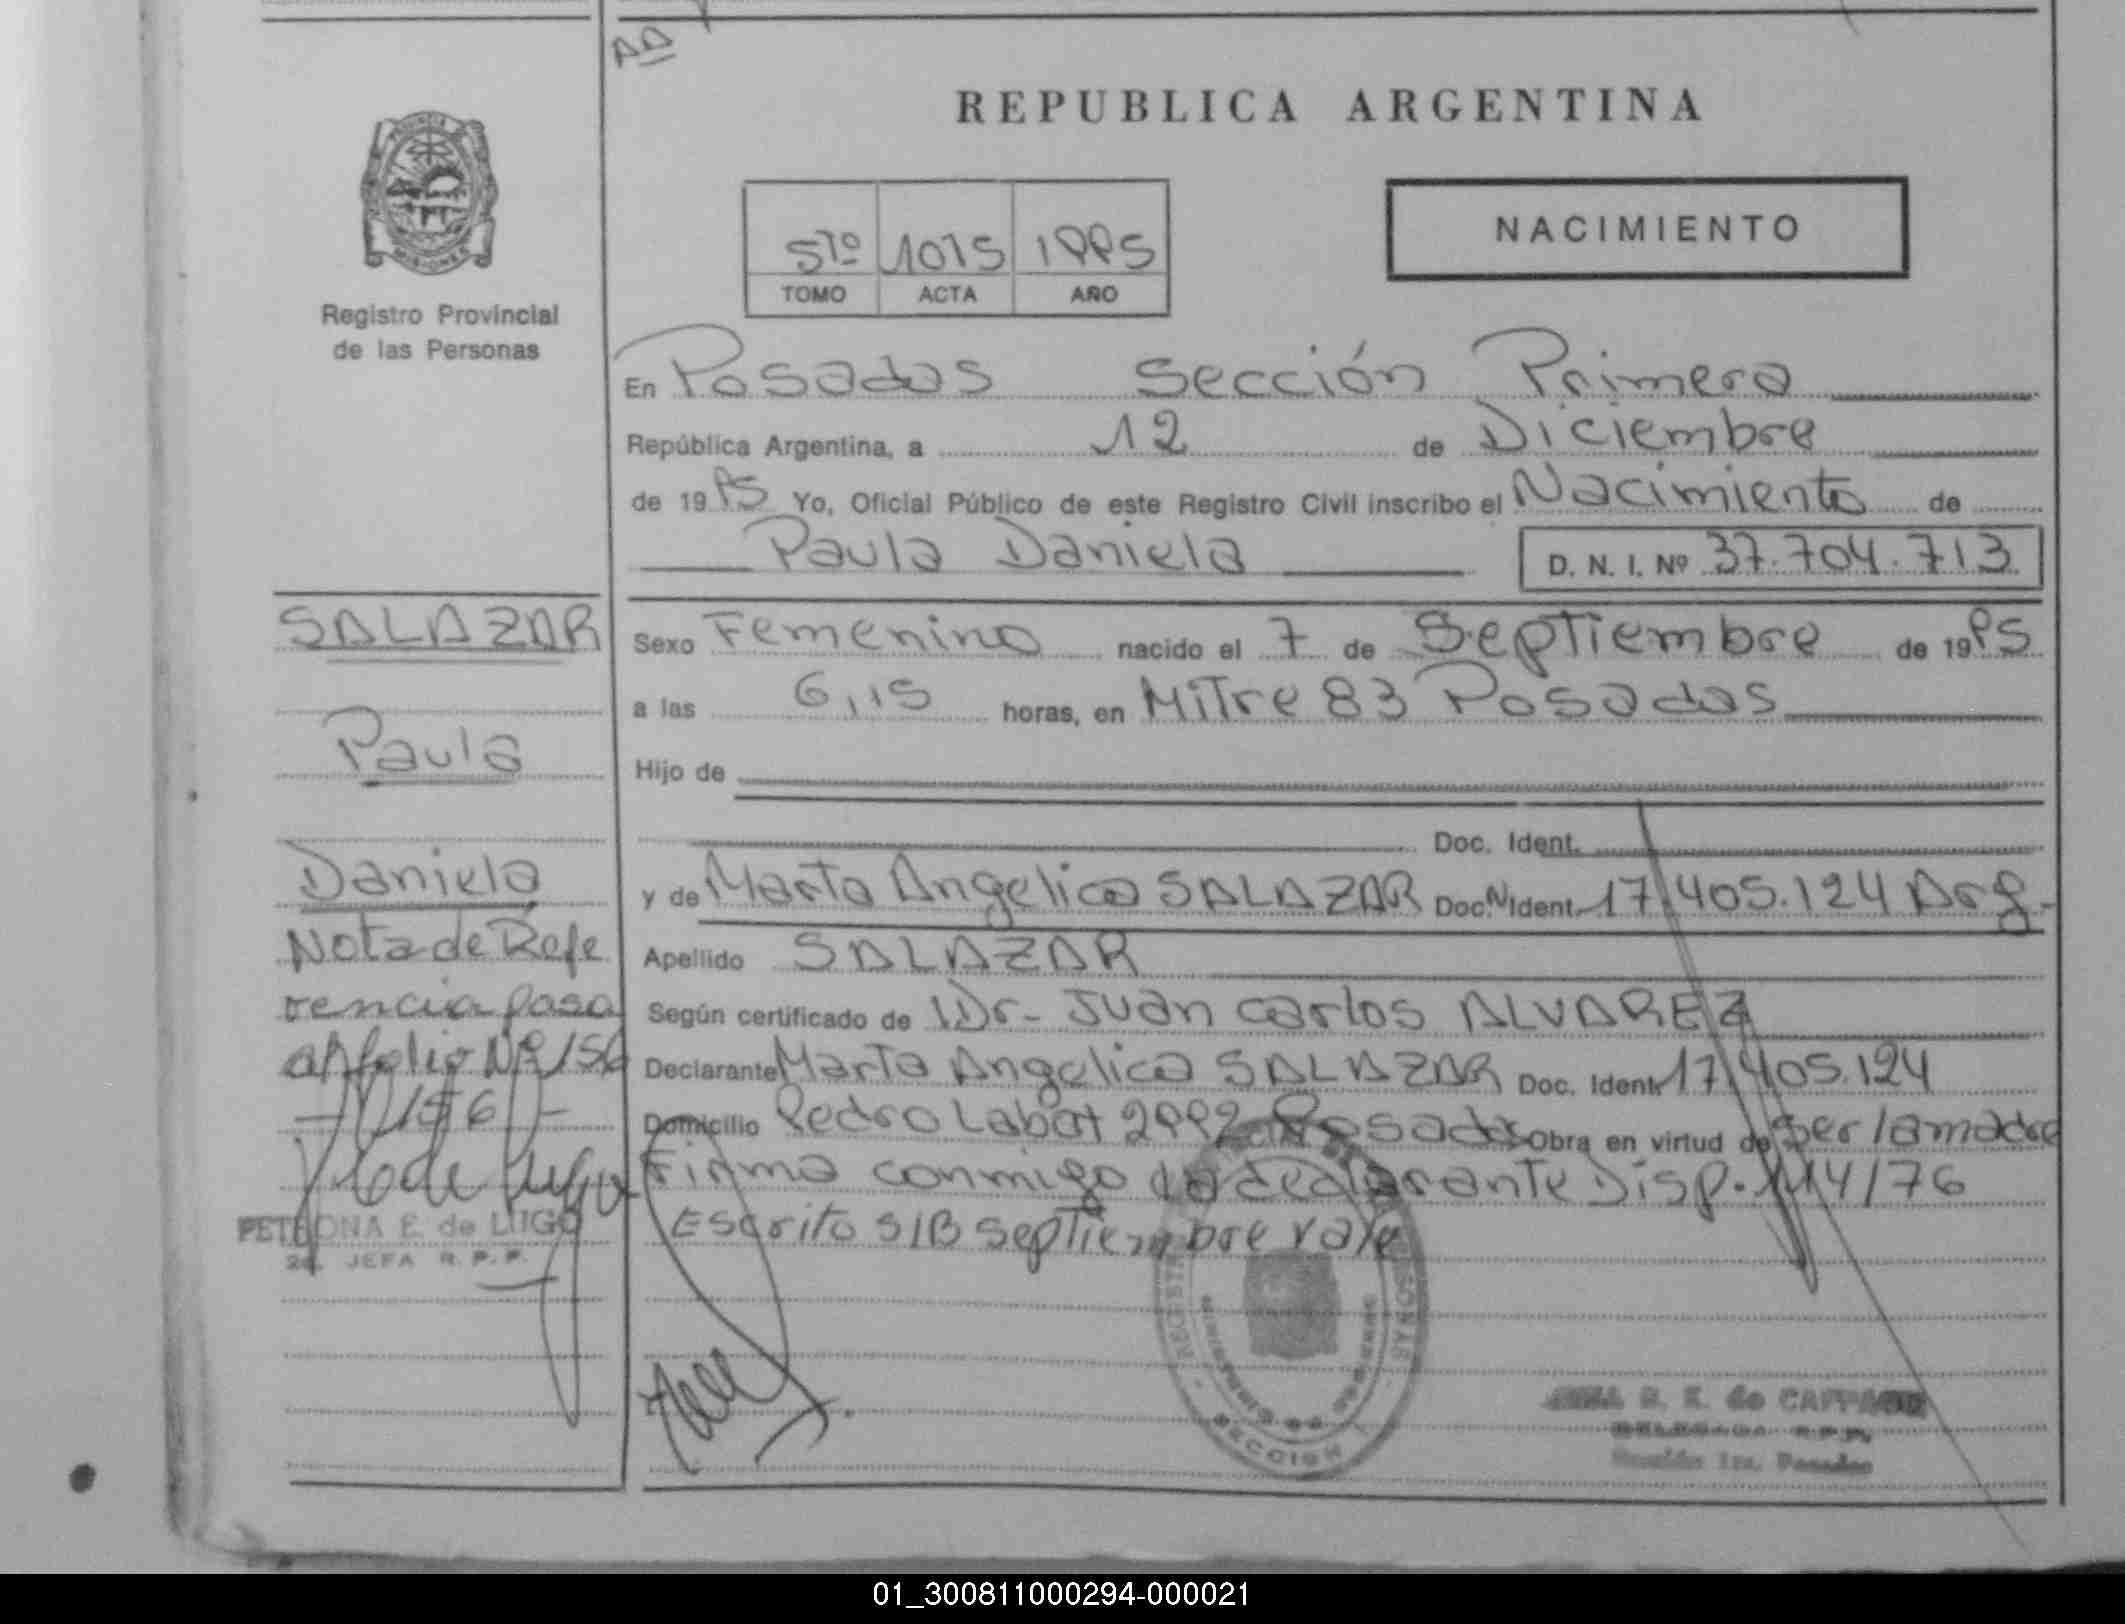 AA
REPUBLICA ARGENTINA
PROVINCIA DE
MISIONES
Registro Provincial
de las Personas
NACIMIENTO
5to 1015 1995
TOMO ACTA AÑO
En Posadas Sección Primera
República Argentina, a 12 de Diciembre
de 1995 Yo, Oficial Público de este Registro Civil inscribo el Nacimiento de
Paula Daniela D. N. I. Nº 37.704.713
SALAZAR
Paula
Daniela
Nota de Refe
rencia pasa
al folio Nº 156
-156-
PETRONA E. de LUGO
2a. JEFA R.P.P.
Sexo Femenino nacido el 7 de Septiembre de 1995
a las 6,15 horas, en Mitre 83 Posadas
Hijo de
Doc. Ident.
y de Marta Angelica SALAZAR Doc.N Ident. 17.405.124 Arg.
Apellido SALAZAR
Según certificado de Dr- Juan Carlos ALVAREZ
Declarante Marta Angelica SALAZAR Doc. Ident. 17.405.124
Domicilio Pedro Labat 2992 Posadas Obra en virtud de Ser la madre
Firma conmigo la declarante Disp. 114/76
Escrito S/B Septiembre vale
SECCION 1
R. E. de
Sección 1ra. Posadas
01_300811000294-000021